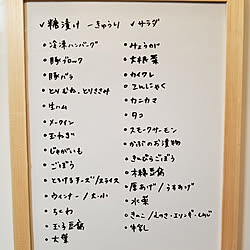 ✓糖漬け - きゅうり
・冷凍ハンバーグ
・豚ブロック
・豚バラ
・とりむね、とりささみ
・生ハム
・メークイン
・玉ねぎ
・じゃがいも
・ごぼう
・とろけるチーズ/スライス
・ウィンナー/大・小
・ちくわ
・玉子豆腐
・大葉
✓サラダ
・みょうが
・大根葉
・カイワレ
・こんにゃく
・カニカマ
・タコ
・スモークサーモン
・かぶのお漬物
・きんぴらごぼう
・木綿豆腐
・厚あげ/うすあげ
・水菜
・きのこ/しめじ・エリンギ・しめじ
・牛すじ